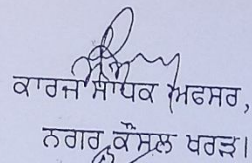 ਕਾਰਜ ਸਾਧਕ ਅਫਸਰ,
ਨਗਰ ਕੌਂਸਲ ਖਰੜ।